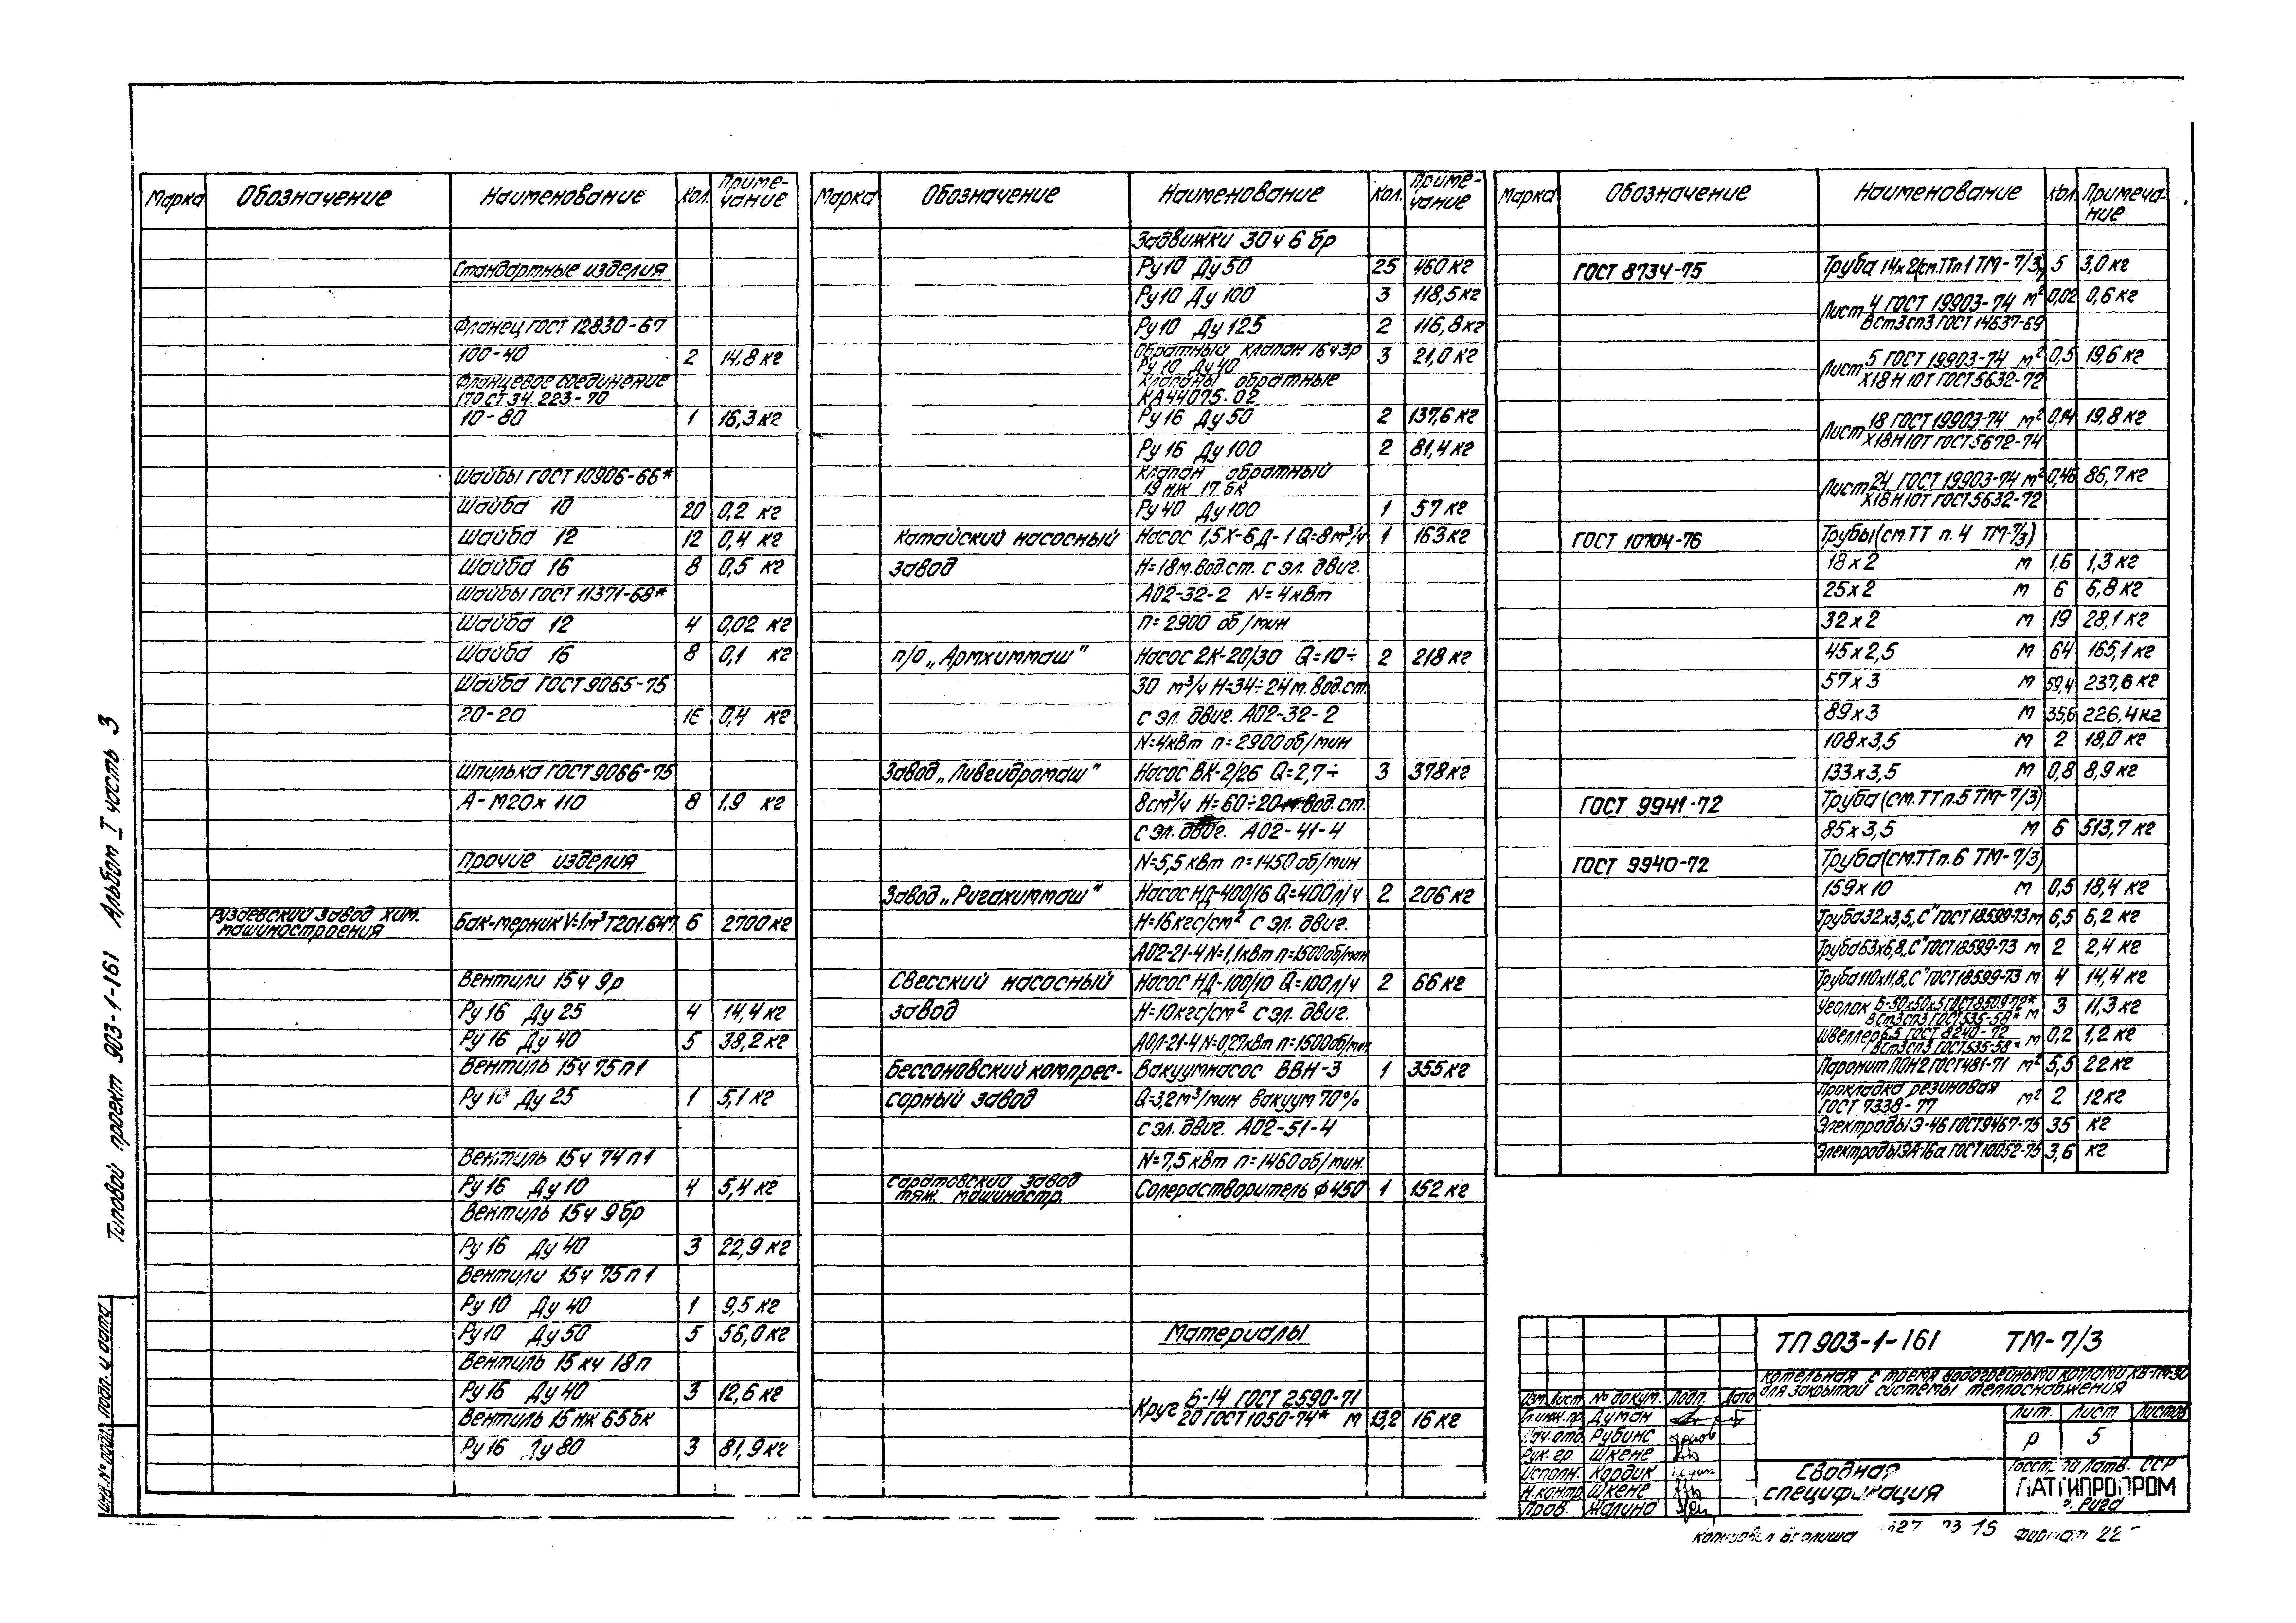 Типовой проект 903-1-161 Альбом I часть 3
Марка Обозначение Наименование Кол. Приме-
чание
Стандартные изделия
Фланец ГОСТ 12830-67
100-40 2 14,8 кг
Фланцевое соединение
17ОСТ 34. 223-70
10-80 1 16,3 кг
Шайбы ГОСТ 10906-66*
Шайба 10 20 0,2 кг
Шайба 12 12 0,4 кг
Шайба 16 8 0,5 кг
Шайбы ГОСТ 11371-68*
Шайба 12 4 0,02 кг
Шайба 16 8 0,1 кг
Шайба ГОСТ 9065-75
20-20 16 0,4 кг
Шпилька ГОСТ 9066-75
А-М20х110 8 1,9 кг
Прочие изделия
Рузаевский завод хим.
машиностроения
Бак-мерник V=1м³ Т201.647 6 2700 кг
Вентили 15ч 9р
Ру 16 Ду 25 4 14,4 кг
Ру 16 Ду 40 5 38,2 кг
Вентиль 15ч 75п1
Ру 10 Ду 25 1 5,1 кг
Вентиль 15ч 74п1
Ру 16 Ду 10 4 5,4 кг
Вентиль 15ч 9бр
Ру 16 Ду 40 3 22,9 кг
Вентили 15ч 75п1
Ру 10 Ду 40 1 9,5 кг
Ру 10 Ду 50 5 56,0 кг
Вентиль 15кч 18п
Ру 16 Ду 40 3 12,6 кг
Вентиль 15нж 65бк
Ру 16 Ду 80 3 81,9 кг
Марка Обозначение Наименование Кол. Приме-
чание
Задвижки 30ч 6бр
Ру 10 Ду 50 25 460 кг
Ру 10 Ду 100 3 118,5 кг
Ру 10 Ду 125 2 116,8 кг
Обратный клапан 16ч3р 3 21,0 кг
Ру 10 Ду 40
Клапаны обратные
КА44075.02
Ру 16 Ду 50 2 137,6 кг
Ру 16 Ду 100 2 81,4 кг
Клапан обратный
19нж 17бк
Ру 40 Ду 100 1 57 кг
Катайский насосный Насос 1,5Х-6Д-1 Q=8м³/ч 1 163 кг
завод Н=18м.вод.ст. с эл. двиг.
АО2-32-2 N=4кВт
n=2900 об/мин
п/о „Армхиммаш" Насос 2К-20/30 Q=10÷ 2 218 кг
30 м³/ч Н=34÷24м.вод.ст.
с эл. двиг. АО2-32-2
N=4кВт n=2900об/мин
Завод „Ливгидромаш" Насос ВК-2/26 Q=2,7÷ 3 378 кг
8см³/ч Н=60÷20м.вод.ст.
с эл. двиг. АО2-41-4
N=5,5квт n=1450 об/мин
Завод „Ригахиммаш" Насос НД-400/16 Q=400л/ч 2 206 кг
Н=16кгс/см² с эл. двиг.
АО2-21-4 N=1,1квт n=1500об/мин
Свесский насосный Насос НД-100/10 Q=100л/ч 2 66 кг
завод Н=10кгс/см² с эл. двиг.
АОЛ-21-4 N=0,27квт n=1500об/мин
Бессоновский компрес- Вакуумнасос ВВН-3 1 355 кг
сорный завод Q=3,2м³/мин вакуум 70%
с эл. двиг. АО2-51-4
N=7,5квт n=1460об/мин.
Саратовский завод
тяж. машиностр.
Солерастворитель Ф450 1 152 кг
Материалы
Круг 6-14 ГОСТ 2590-71
20 ГОСТ 1050-74* м 13,2 16 кг
Марка Обозначение Наименование Кол. Примеча-
ние
ГОСТ 8734-75 Труба 14х2(см.ТТп.1 ТМ-7/3) 5 3,0 кг
Лист 4 ГОСТ 19903-74 м² 0,02 0,6 кг
Вст3сп3 ГОСТ 14637-69
Лист 5 ГОСТ 19903-74 м² 0,5 19,6 кг
Х18Н10Т ГОСТ 5632-72
Лист 18 ГОСТ 19903-74 м² 0,14 19,8 кг
Х18Н10Т ГОСТ 5672-74
Лист 24 ГОСТ 19903-74 м² 0,46 86,7 кг
Х18Н10Т ГОСТ 5632-72
ГОСТ 10704-76 Трубы(см.ТТ п.4 ТМ-7/3)
18х2 м 1,6 1,3 кг
25х2 м 6 6,8 кг
32х2 м 19 28,1 кг
45х2,5 м 64 165,1 кг
57х3 м 59,4 237,6 кг
89х3 м 35,6 226,4 кг
108х3,5 м 2 18,0 кг
133х3,5 м 0,8 8,9 кг
ГОСТ 9941-72 Труба(см.ТТп.5 ТМ-7/3)
85х3,5 м 6 513,7 кг
ГОСТ 9940-72 Труба(см.ТТп.6 ТМ-7/3)
159х10 м 0,5 18,4 кг
Труба 32х3,5„С"ГОСТ 18599-73 м 6,5 6,2 кг
Труба 63х6,8„С"ГОСТ 18599-73 м 2 2,4 кг
Труба 110х11,8„С"ГОСТ 18599-73 м 4 14,4 кг
Уголок Б-50х50х5 ГОСТ 8509-72*
Вст3сп3 ГОСТ 535-58* м 3 11,3 кг
Швеллер 6.5 ГОСТ 8240-72
Вст3сп3 ГОСТ 535-58* м 0,2 1,2 кг
Паронит ПОН2 ГОСТ 481-71 м² 5,5 22 кг
Прокладка резиновая
ГОСТ 7338-77 м² 2 12 кг
Электроды Э-46 ГОСТ 9467-75 35 кг
Электроды ЭА-16а ГОСТ 10052-75 3,6 кг
ТП 903-1-161 ТМ-7/3
Котельная с тремя водогрейными котлами КВ-ГМ-30
для закрытой системы теплоснабжения
Изм. Лист № докум. Подп. Дата
Гл.инж.пр. Думан
Нач.отд. Рубинс
Рук. гр. Шкене
Исполн. Кордик
Н.контр. Шкене
Пров. Жалина
Лит. Лист Листов
Р 5
Сводная
спецификация
Госстрой Латв. ССР
ЛАТГИПРОПРОМ
г. Рига
Инв.№подл. Подп. и дата
Копировал Формат 22